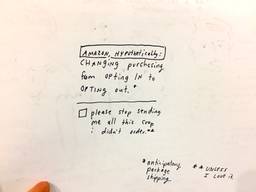 AMAZON, HYPOTHETICALLY:
CHANGING purchasing
from OPTING IN to
OPTING out.*
please stop sending
me all this crap
i didn't order.**
*anticipatory
package
shipping
**UNLESS
I LOVE it